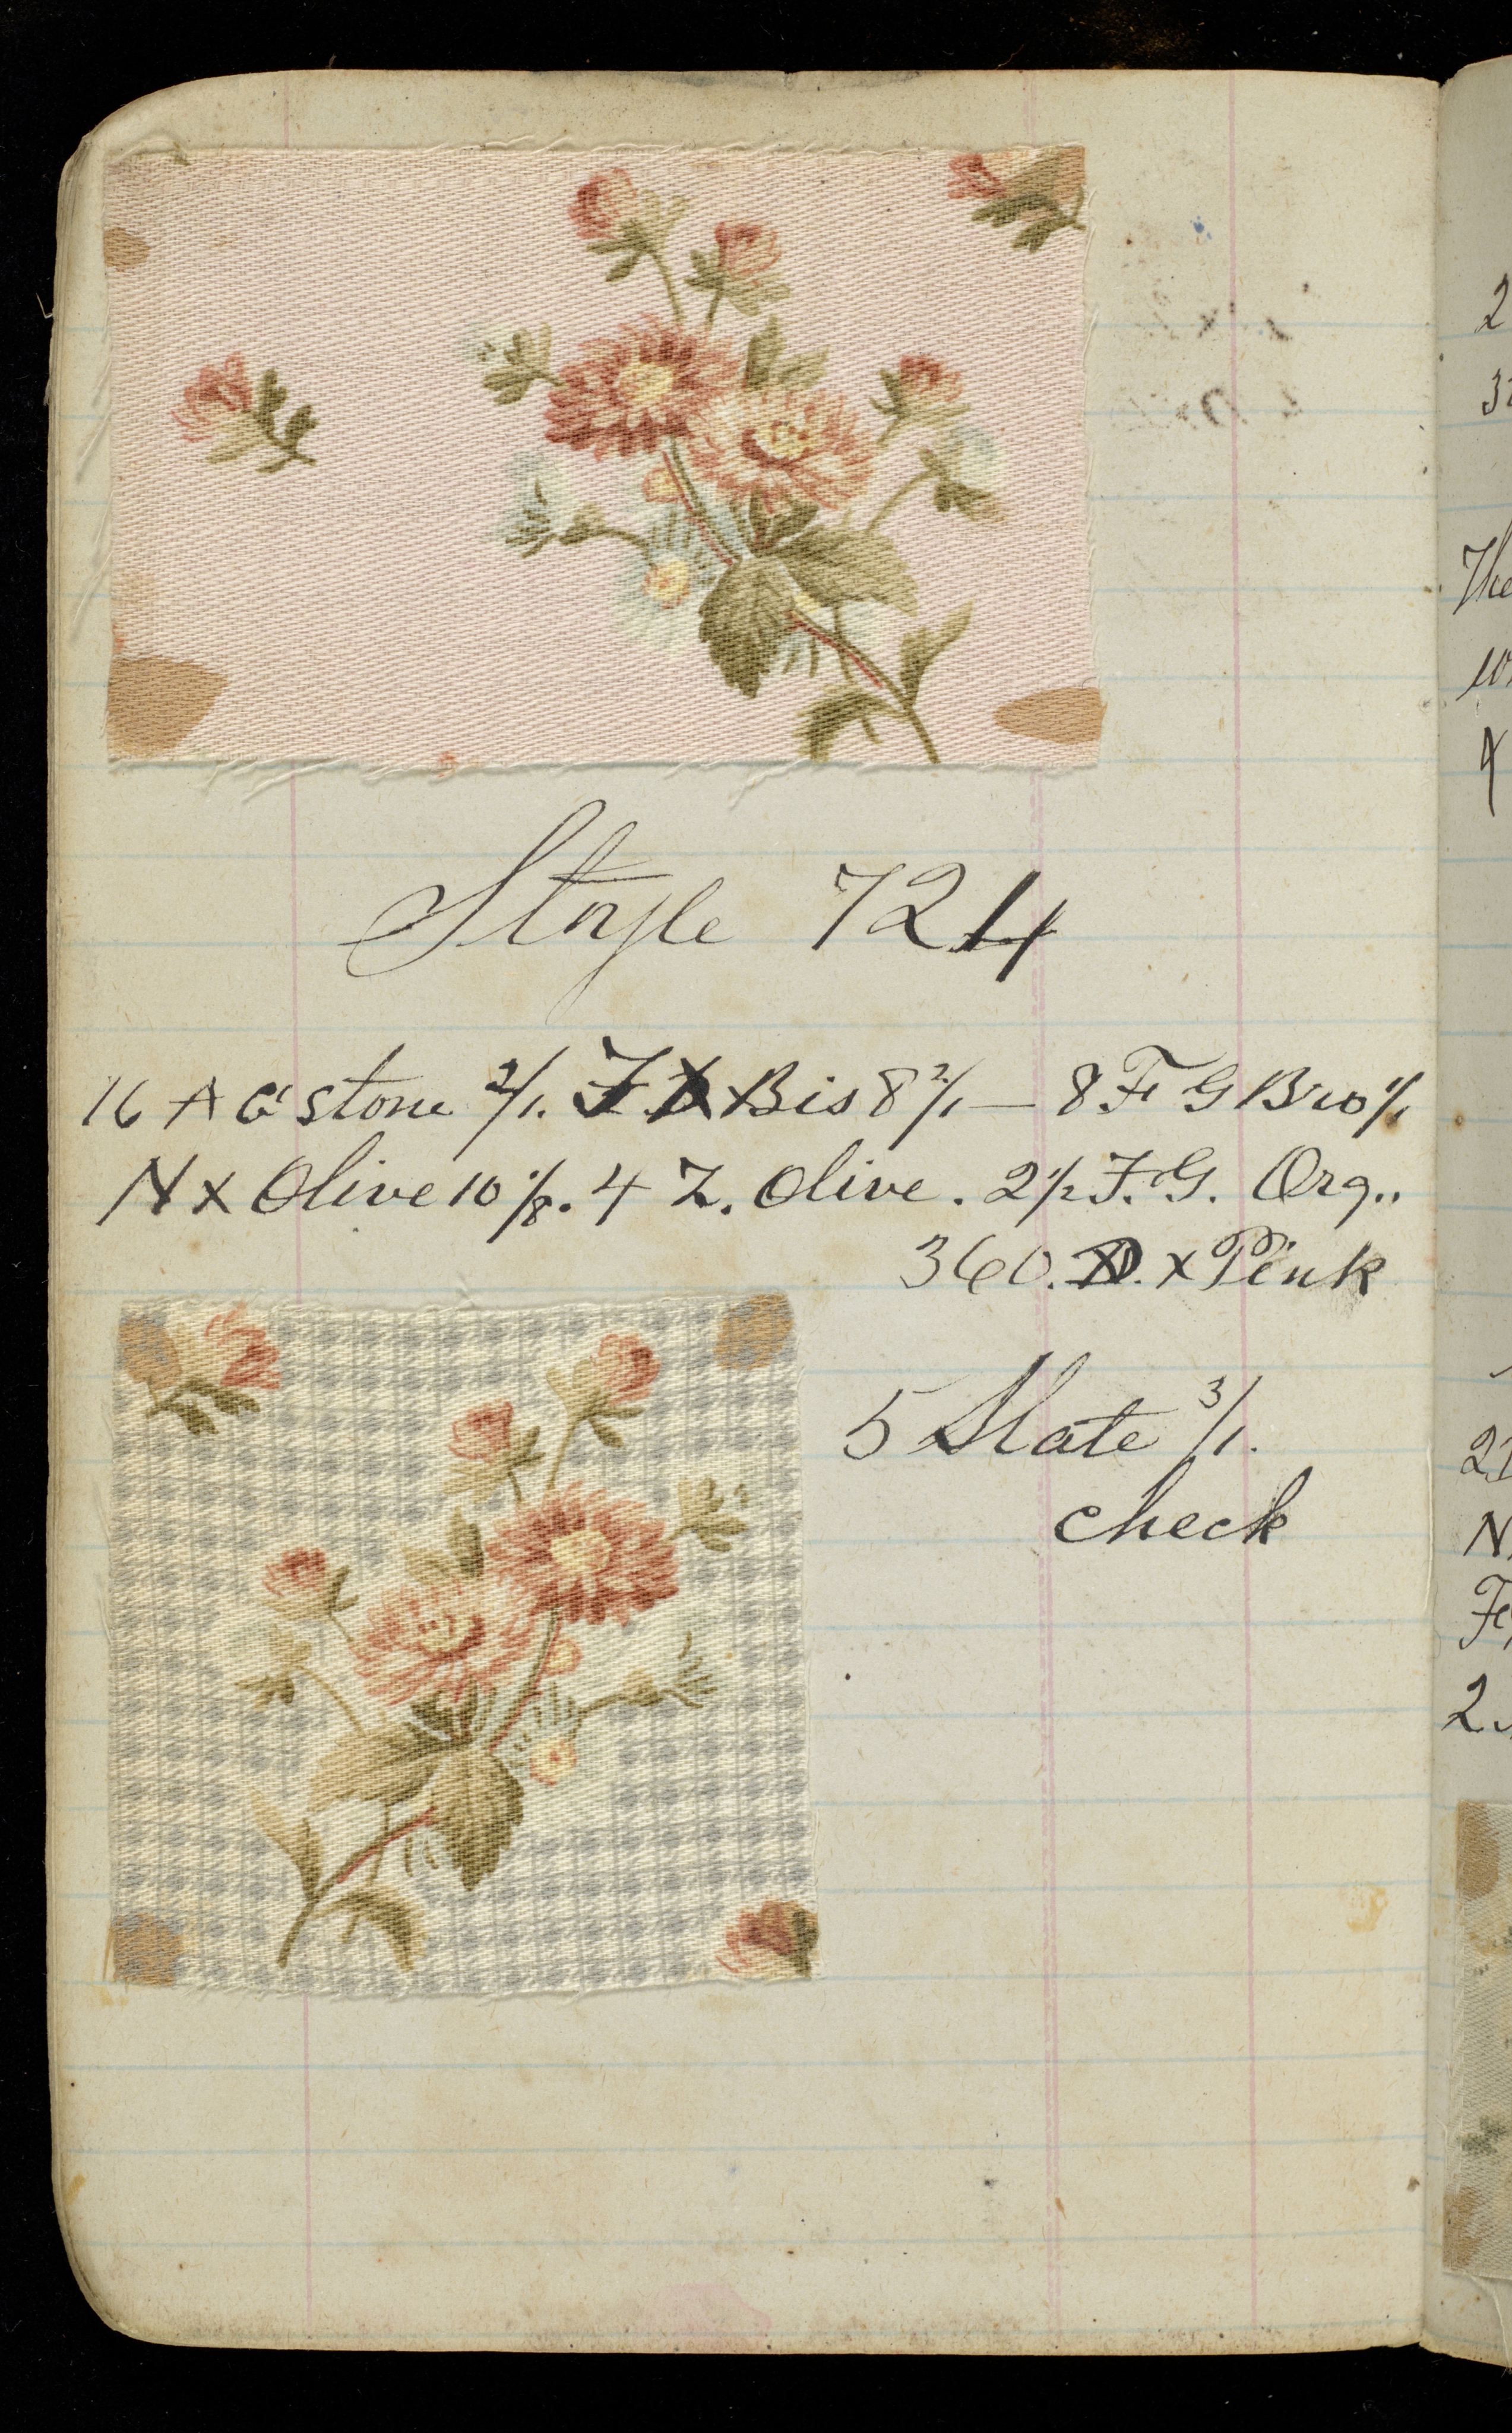 Style 724
16 A G stone 2/1. F. X Bis 8 2/1 — 8 F G Bro 1/1
N X Olive 10 1/8. 4 Z. Olive. 2 1/2 F. G. Org..
360. D. X Pink
5 Slate 3/1.
check
2
The
N
2